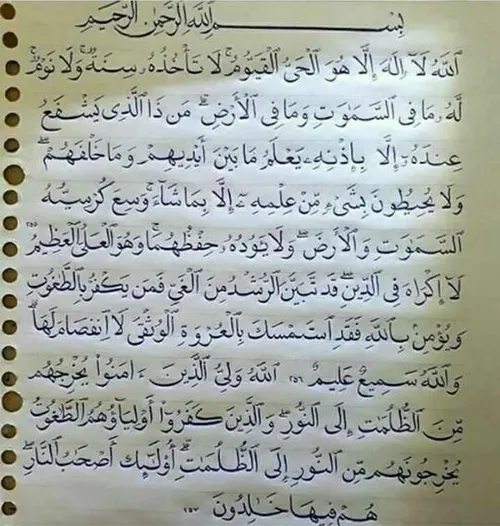 بِسْمِ ٱللَّهِ ٱلرَّحْمَٰنِ ٱلرَّحِيمِ
ٱللَّهُ لَآ إِلَٰهَ إِلَّا هُوَ ٱلْحَىُّ ٱلْقَيُّومُ ۚ لَا تَأْخُذُهُۥ سِنَةٌ وَلَا نَوْمٌ ۚ
لَّهُۥ مَا فِى ٱلسَّمَٰوَٰتِ وَمَا فِى ٱلْأَرْضِ ۗ مَن ذَا ٱلَّذِى يَشْفَعُ
عِندَهُۥٓ إِلَّا بِإِذْنِهِۦ ۚ يَعْلَمُ مَا بَيْنَ أَيْدِيهِمْ وَمَا خَلْفَهُمْ ۖ
وَلَا يُحِيطُونَ بِشَىْءٍ مِّنْ عِلْمِهِۦٓ إِلَّا بِمَا شَآءَ ۚ وَسِعَ كُرْسِيُّهُ
ٱلسَّمَٰوَٰتِ وَٱلْأَرْضَ ۖ وَلَا يَـُٔودُهُۥ حِفْظُهُمَا ۚ وَهُوَ ٱلْعَلِىُّ ٱلْعَظِيمُ ٢٥٥
لَآ إِكْرَاهَ فِى ٱلدِّينِ ۖ قَد تَّبَيَّنَ ٱلرُّشْدُ مِنَ ٱلْغَىِّ ۚ فَمَن يَكْفُرْ بِٱلطَّٰغُوتِ
وَيُؤْمِنۢ بِٱللَّهِ فَقَدِ ٱسْتَمْسَكَ بِٱلْعُرْوَةِ ٱلْوُثْقَىٰ لَا ٱنفِصَامَ لَهَا ۗ
وَٱللَّهُ سَمِيعٌ عَلِيمٌ ٢٥٦ ٱللَّهُ وَلِىُّ ٱلَّذِينَ ءَامَنُوا۟ يُخْرِجُهُم
مِّنَ ٱلظُّلُمَٰتِ إِلَى ٱلنُّورِ ۖ وَٱلَّذِينَ كَفَرُوٓا۟ أَوْلِيَآؤُهُمُ ٱلطَّٰغُوتُ
يُخْرِجُونَهُم مِّنَ ٱلنُّورِ إِلَى ٱلظُّلُمَٰتِ ۗ أُو۟لَٰٓئِكَ أَصْحَٰبُ ٱلنَّارِ ۖ
هُمْ فِيهَا خَٰلِدُونَ ٢٥٧